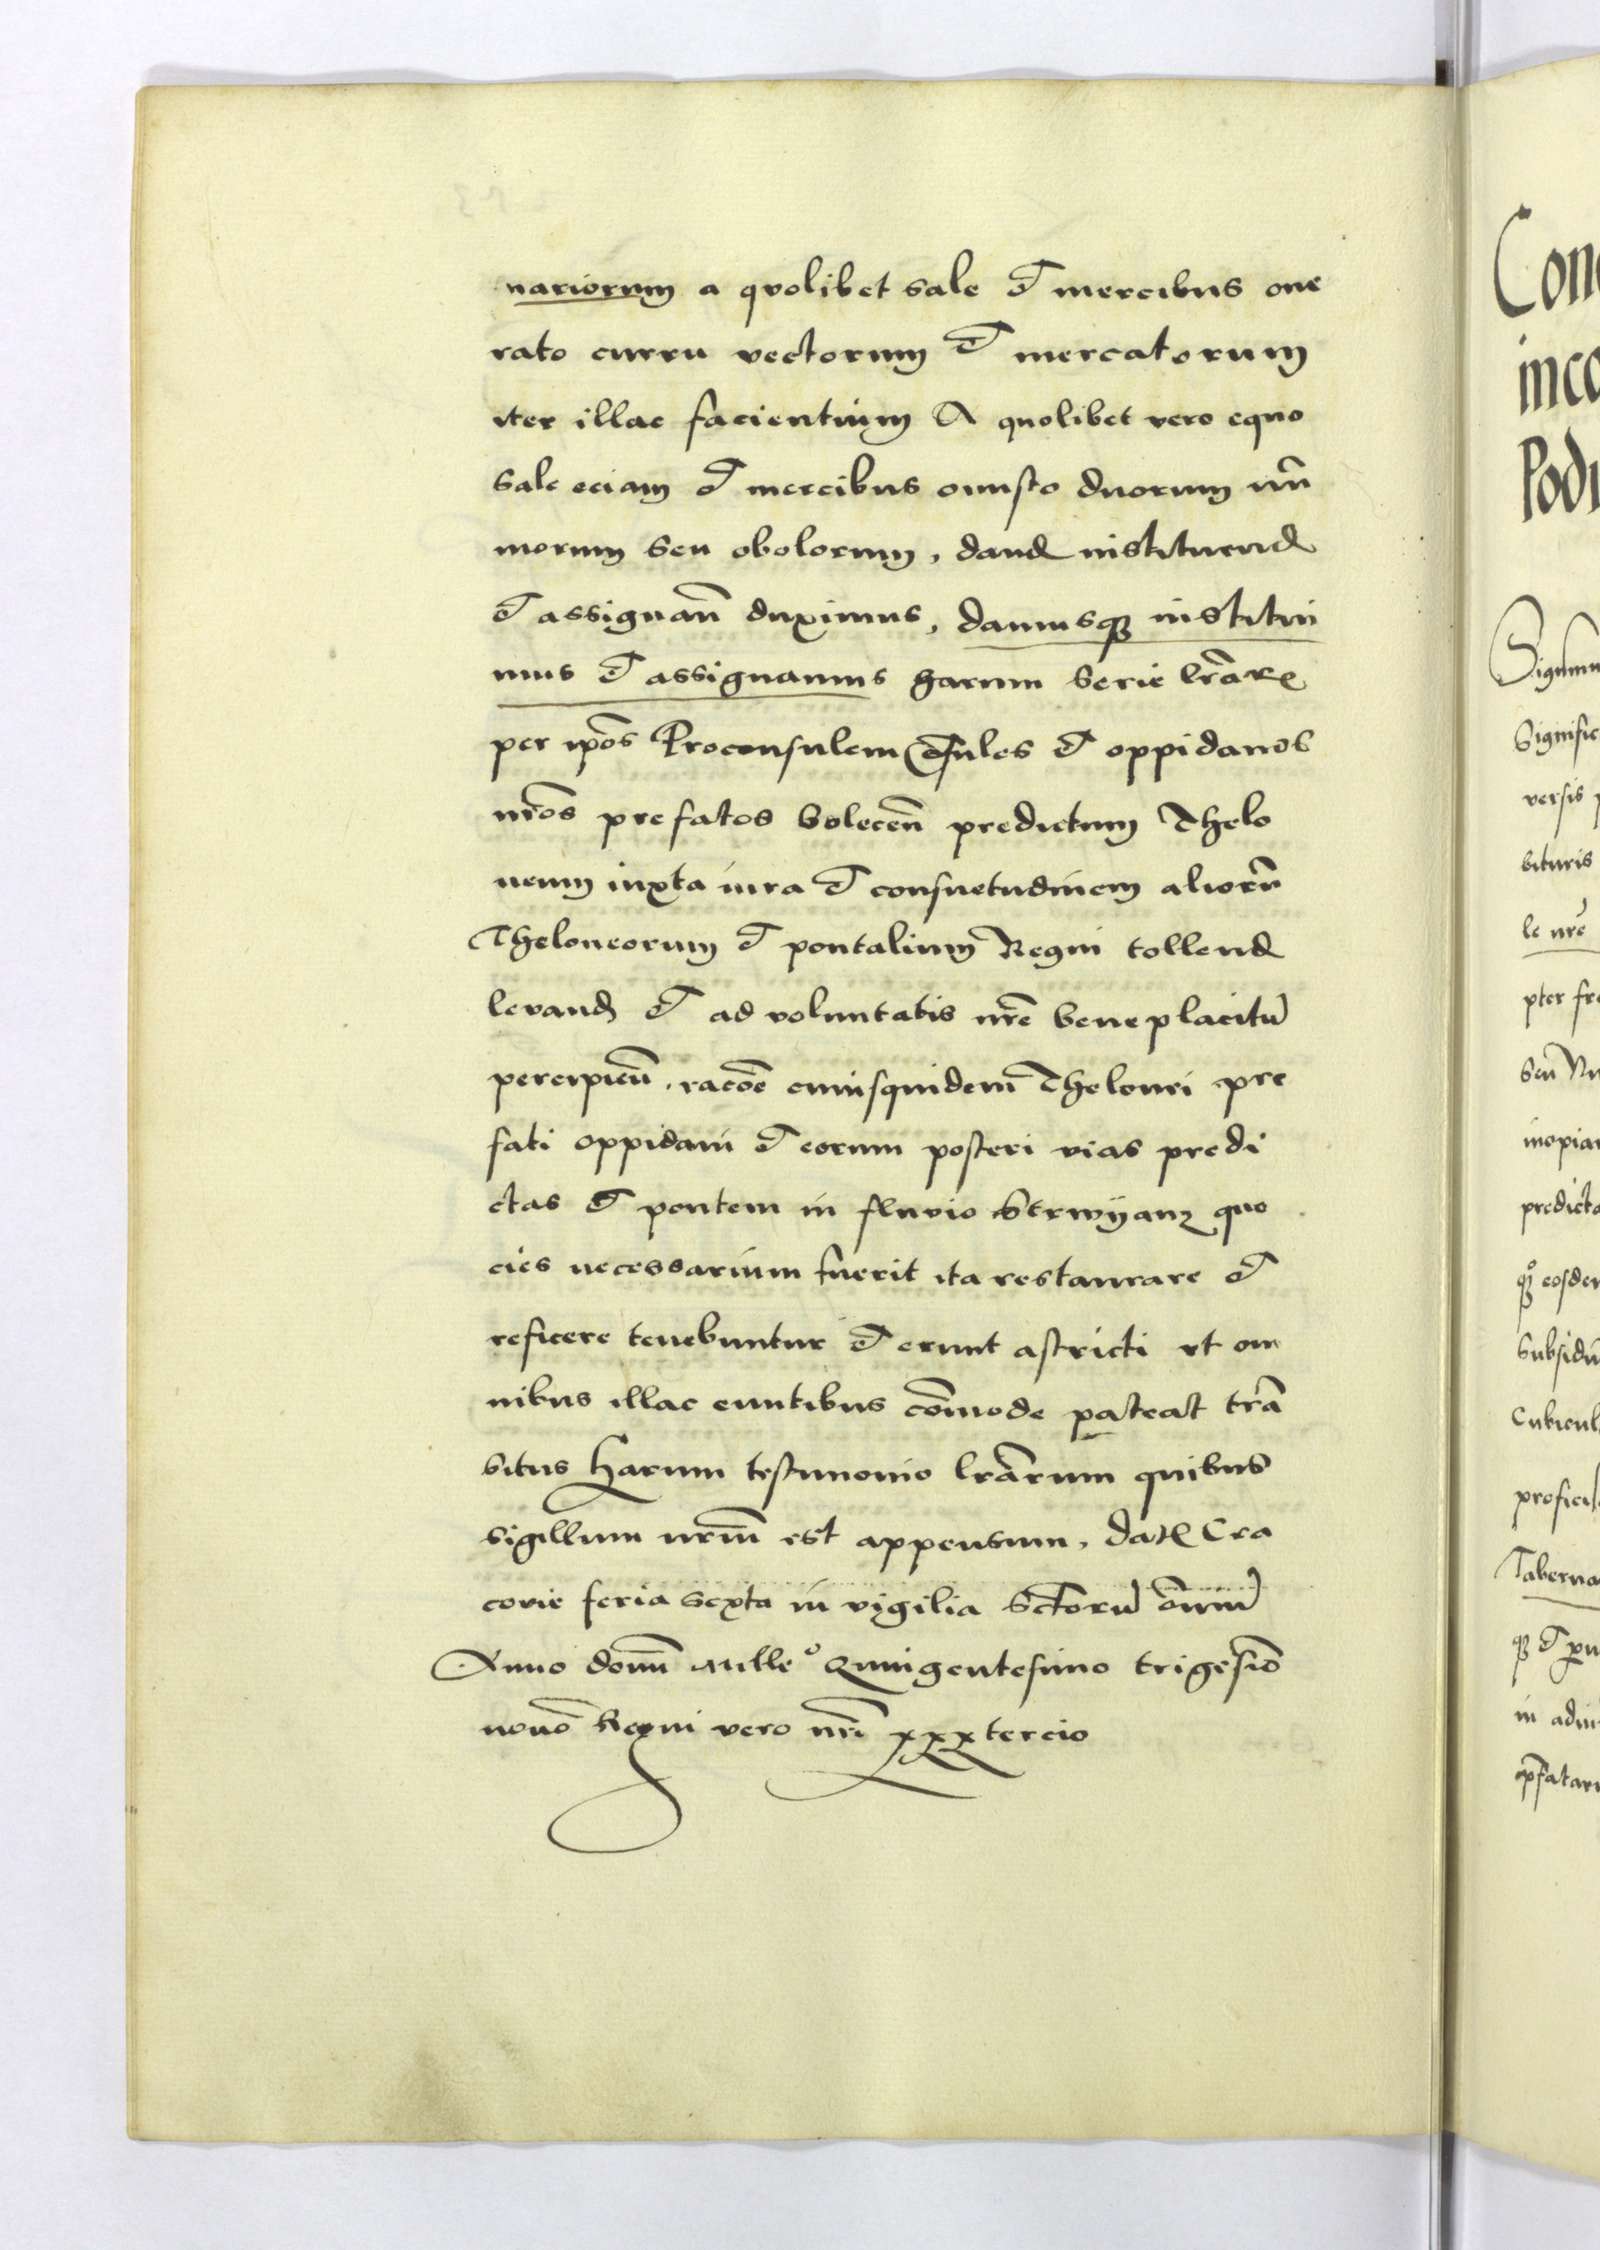 nariorum a quolibet sale et mercibus one
rato curru vectorum et mercatorum
iter illac facientium A quolibet vero equo
sale eciam et mercibus onusto duorum nu̅
morum seu obolorum, dand instituend
et assignan̅ duximus, damusq₃ institui
mus et assignamus harum serie lr̅aꝝ
per ip̅os Proconsulem Co̅sules et oppidanos
nr̅os prefatos Solecen̅ predictum Thelo
neum iuxta iura et consuetudinem alior̅u
Theloneorum et pontalium Regni tollend
levand et ad voluntatis nr̅e beneplacitu̅
percipien̅, rac̅oe cuiusquidem Thelonei pre
fati oppidani et eorum posteri vias predi
ctas et pontem in fluvio Strwyanz quo
cies necessarium fuerit ita restaurare et
reficere tenebuntur et erunt astricti ut om
nibus illac euntibus co̅mode pateat tra̅
situs Harum testimonio lr̅arum quibus
sigillum nr̅um est appensum, dat Cra
covie feria sexta in vigilia s̅ctoru̅ om̅iu̅
Anno domi̅ Milleº Quingentesimo trigesi̅o
nono̅ Regni vero nr̅i xxxtercio
Con
inco
Podu
Sigism
Signific
versis p
bituris
le nr̅e
pter fr
seu̅ Nu
inopiam
predicta
eosdem
subsidu̅
Cubicul
profici
Taberna
in adiu